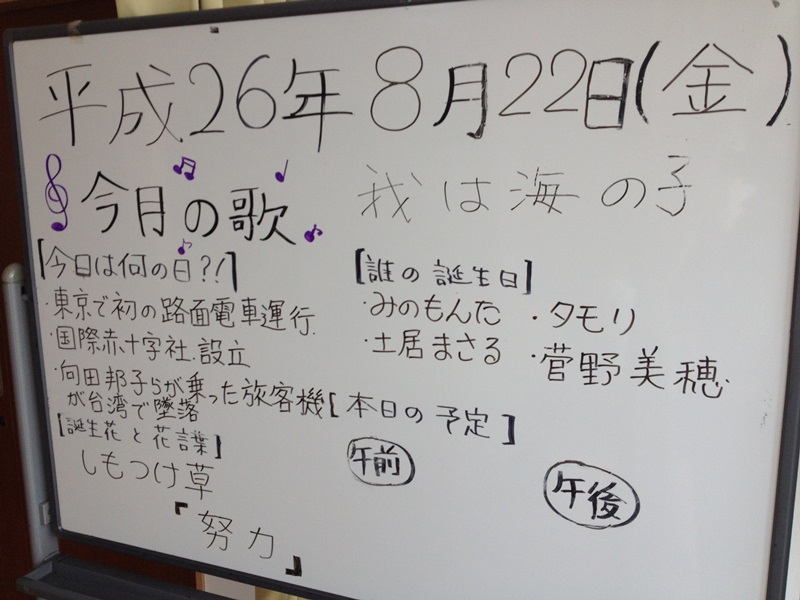 平成26年8月22日(金)
今月の歌 我は海の子
[今日は何の日?!]
・東京で初の路面電車運行
・国際赤十字社 設立
・向田邦子らが乗った旅客機
が台湾で墜落
[誕生花と花言葉]
しもつけ草
『努力』
[誰の誕生日]
・みのもんた ・タモリ
・土居まさる ・菅野美穂
[本日の予定]
午前 午後